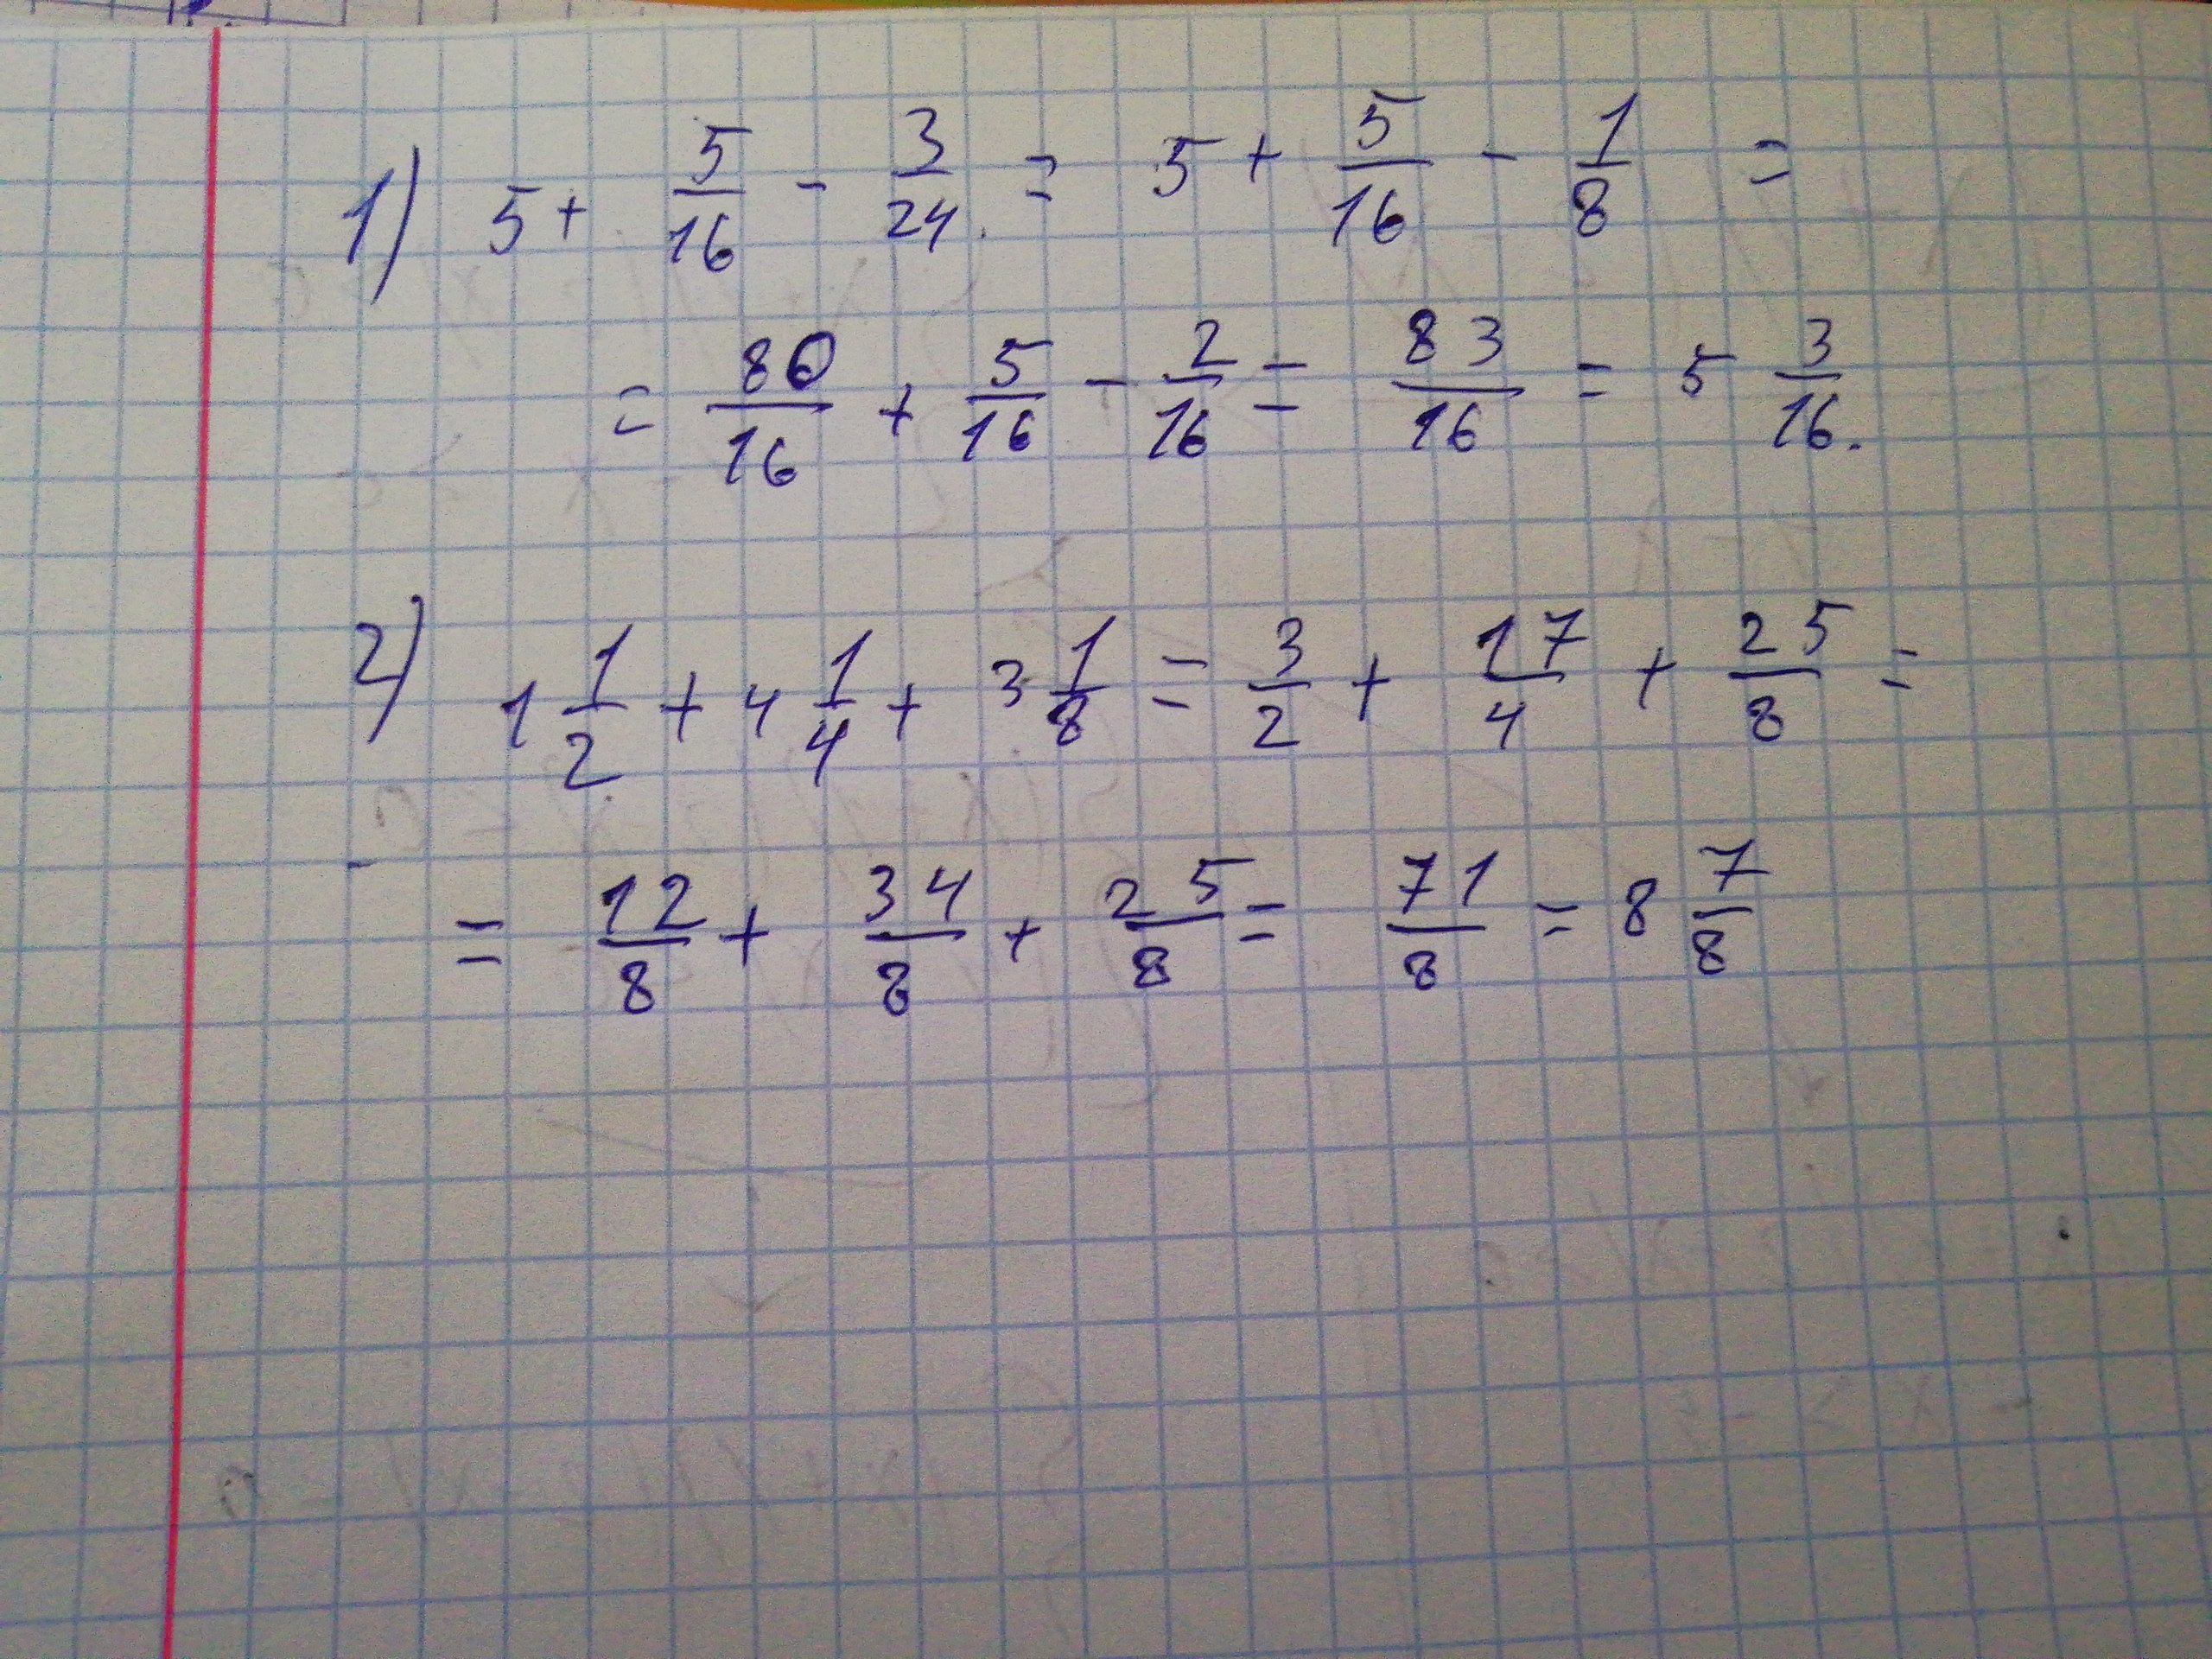 1) 5 + 5/16 - 3/24 = 5 + 5/16 - 1/8 =
= 80/16 + 5/16 - 2/16 = 83/16 = 5 3/16.
2) 1 1/2 + 4 1/4 + 3 1/8 = 3/2 + 17/4 + 25/8 =
= 12/8 + 34/8 + 25/8 = 71/8 = 8 7/8